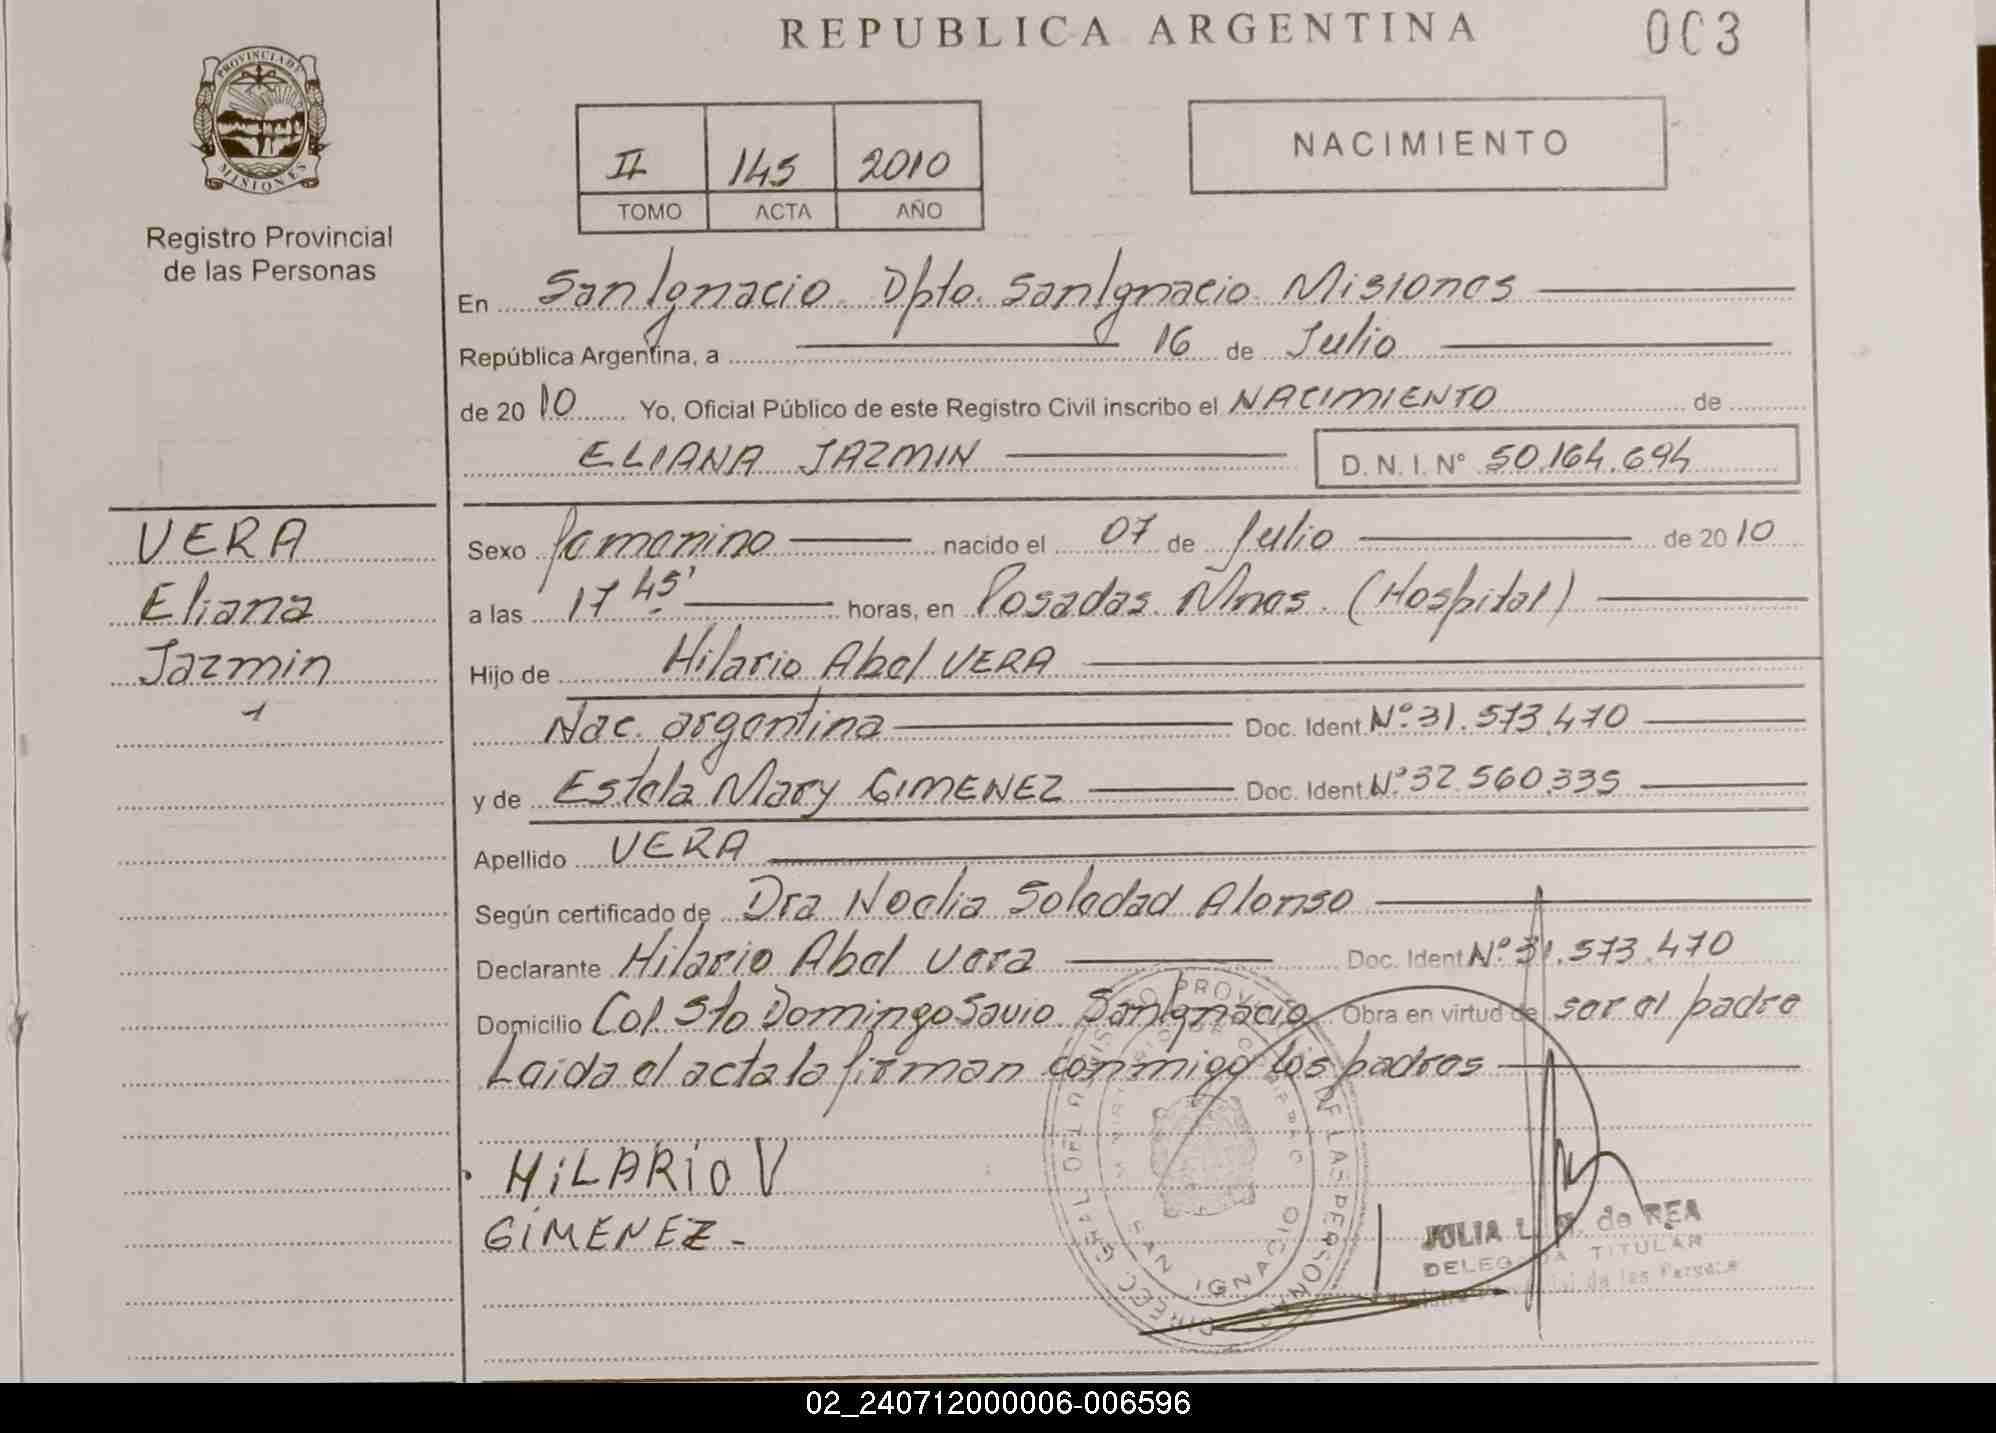 REPUBLICA ARGENTINA
003
PROVINCIA DE
MISIONES
Registro Provincial
de las Personas
II 145 2010
TOMO ACTA AÑO
NACIMIENTO
En San Ignacio Dpto. San Ignacio Misiones
República Argentina, a 16 de Julio
de 2010 Yo, Oficial Público de este Registro Civil inscribo el NACIMIENTO de
ELIANA JAZMIN D.N.I. Nº 50.164.694
VERA
Eliana
Jazmin
1
Sexo femenino nacido el 07 de Julio de 2010
a las 17 45' horas, en Posadas. Mnes. (Hospital)
Hijo de Hilario Abel VERA
Nac. argentina Doc. Ident. Nº 31.573.470
y de Estela Mary GIMENEZ Doc. Ident. Nº 32.560.335
Apellido VERA
Según certificado de Dra Noelia Soledad Alonso
Declarante Hilario Abel Vera Doc. Ident. Nº 31.573.470
Domicilio Col. Sto Domingo Savio. San Ignacio Obra en virtud de ser el padre
Leida el acta la firman conmigo los padres
HiLARio V
GiMENEZ -
SAN IGNACIO
JULIA L. de REA
DELEGADA TITULAR
de las Personas
02_240712000006-006596